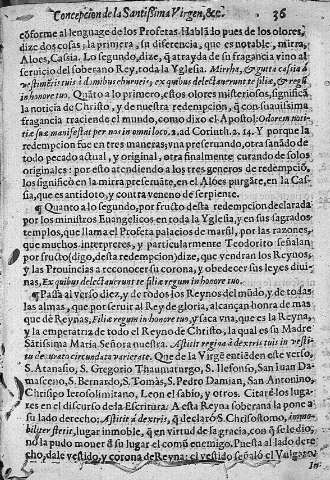 Concepcion de la Santissima Virgen, &c. 36
cōforme al lenguage de los Profetas. Hablādo pues de los olores,
dize dos cosas: la primera, su diferencia, que es notable, mirra,
Aloes, Casia. Lo segundo, dize, q̄ atrayda de su fragancia vino al
servicio del soberano Rey, toda la Yglesia. Mirrha, & gutta casia à
vestimētis tuis à domibus eburneis, ex quibus delectauerunt te filiæ, & regū
in honore tuo. Quāto a lo primero, estos olores misteriosos, significā
la noticia de Christo, y de nuestra redempcion, q̄ con suauissima
fragrancia traciende el mundo, como dixo el Apostol: Odorem noti-
tiæ suæ manifestat per nos in omni loco. 2. ad Corinth. 2. 14. Y porque la
redempcion fue en tres maneras; vna preseruando, otra sanādo de
todo pecado actual, y original, otra finalmente curando de solos
originales: por esto atendiendo a los tres generos de redempciō,
los significò en la mirra preseruāte, en el Aloes purgāte, en la Cas-
sia, que es antidoto, y contra veneno de serpiente.
¶ Quanto a lo segundo, por fructo desta redempcion declarada
por los ministros Euangelicos en toda la Yglesia, y en sus sagrados
templos, que llama el Profeta palacios de marfil, por las razones,
que muchos interpretes, y particularmente Teodorito señalan
por fructo (digo, desta redempcion) dize, que vendran los Reynos,
y las Prouincias a reconocer su corona, y obedecer sus leyes diui-
nas, Ex quibus delectauerunt te filiæ regum in honore tuo.
¶ Passa al verso diez, y de todos los Reynos del mūdo, y de todas
las almas, que por seruir al Rey de gloria, alcançan honra de mas
que de Reynas, Filiæ regum in honore tuo, y saca vna, que es la Reyna,
y la emperatriz de todo el Reyno de Christo, la qual es su Madre
Sātissima Maria Señora nuestra. Astitit regina à dextris tuis in vesti-
tu de aurato circundata varietate. Que de la Virgē entiēden este verso,
S. Atanasio, S. Gregorio Thaumaturgo, S. Ilefonso, San Iuan Da-
masceno, S. Bernardo, S. Tomàs, S. Pedro Damian, San Antonino,
Chrisipo Ierosolimitano, Leon el sabio, y otros. Citarè los luga-
res en el discurso de la Escritura. A esta Reyna soberana la pone a
su lado derecho; Astitit à dextris, q̄ declarò S. Chrisostomo, immo-
biliter stetit, lugar inmoble, q̄ en virtud de la gracia, con q̄ se le dio,
no la pudo mouer d̄ su lugar el comū enemigo. Puesta al lado dere-
cho, dale vestido, y corona de Reyna: el vestido señalò el Vulgato
In